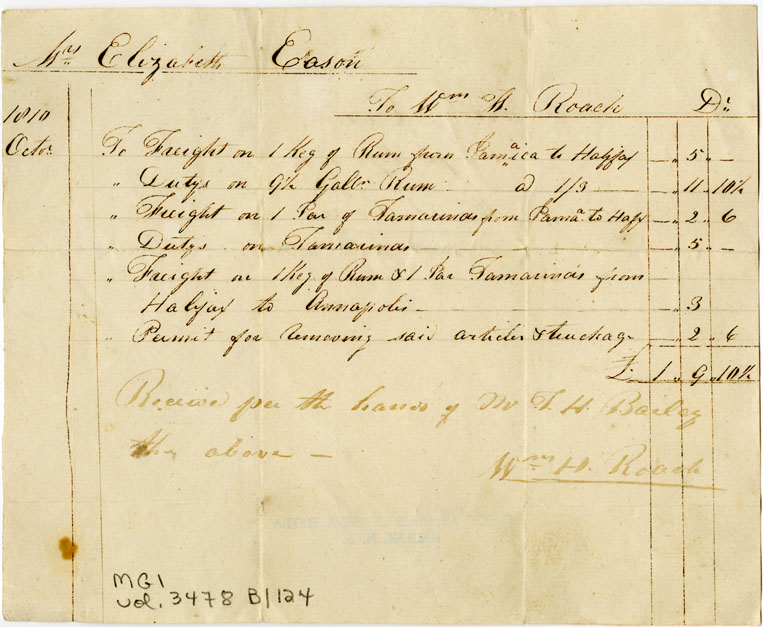 Mrs Elizabeth Eason
To Wm H. Roach Dr
1810
Octr. To Freight on 1 Keg of Rum from Jamaica to Halifax — " 5 " —
" Dutys on 9½ Galls Rum — @ 1/3 — " 11 " 10½
" Freight on 1 Jar of Tamarinds from Jama. to Hafx — " 2 " 6
" Dutys on Tamarinds — " 5 " —
" Freight on 1 Keg of Rum & 1 Jar Tamarinds from
Halifax to Annapolis — " 3
" Permit for removing said articles & truckage " 2 " 6
£ 1 " 9 " 10½
Receive per the hands of Mr T. H. Bailey
the above —
Wm H. Roach
HALIFAX, N. S.
MG1
vol. 3478 B/124